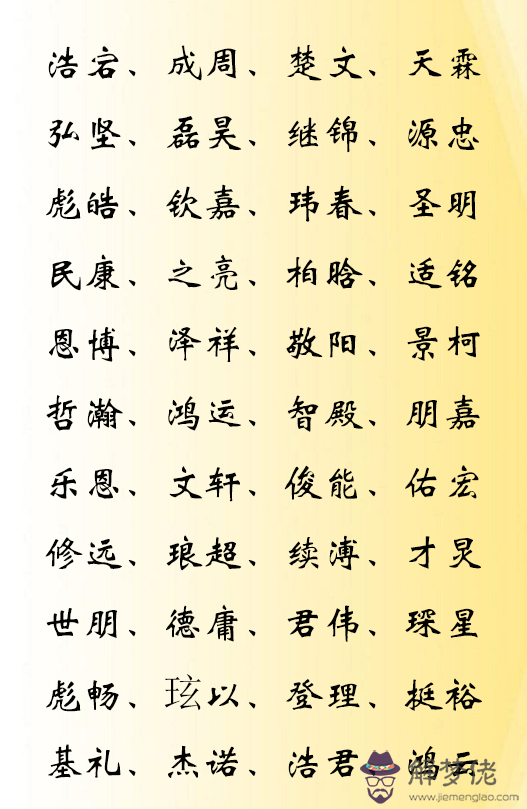 浩宕、成周、楚文、天霖
弘坚、磊昊、继锦、源忠
彪皓、钦嘉、玮春、圣明
民康、之亮、柏晗、适铭
恩博、泽祥、敬阳、景柯
哲瀚、鸿运、智殿、朋嘉
乐恩、文轩、俊能、佑宏
修远、琅超、续溥、才炅
世朋、德庸、君伟、琛星
彪畅、玹以、登理、挺裕
基礼、杰诺、浩君、鸿云
解梦佬
www.jiemenglao.com